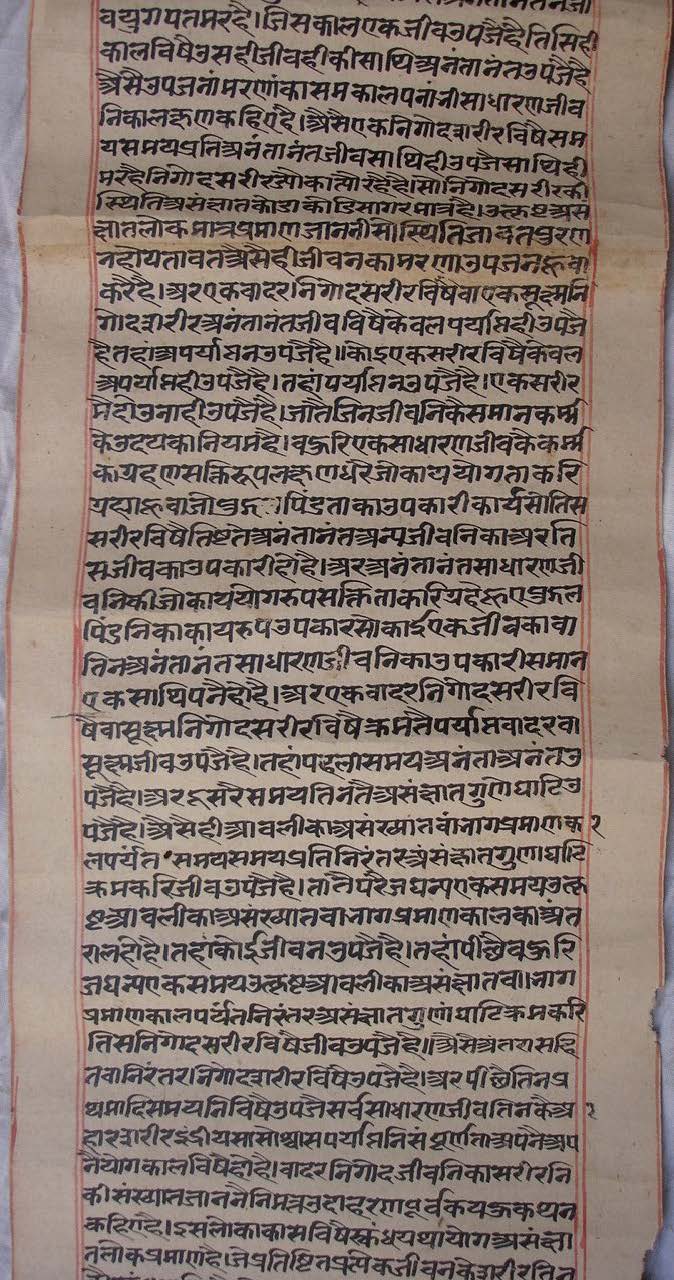 वयुगपतमरहै।जिसकालएकजीवउपजैहैतिसिही
कालविषैउसहीजीवहीकीसाथिअनंतानंतउपजैहै
अैसैउपजनांमरणांकासमकालपनांनीसाधारणजीव
निकालक्षणकहिएहै।अैसैएकनिगोदशरीरविषैसम
यसमयप्रतिअनंतानंतजीवसाथिहीउपजैसाथिही
मरहैनिगोदसरीरज्योकात्योरहैहै।सोनिगोदसरीरकी
स्थितिअसंख्यातकोडाकोडिसागरमात्रहै।उत्कृष्टअसं
ख्यातलोकमात्रप्रमाणजाननीसोस्थितिजावतपूरण
नहोयतावतअैसैहीजीवनकामरणाउपजनहूवा
करैहै।अरएकवादरनिगोदसरीरविषैवाएकसूक्ष्मनि
गोदशरीरअनंतानंतजीवविषैकेवलपर्याप्तहीउपजै
हैतहांअपर्याप्तनउपजैहै॥कोइएकसरीरविषैकेवल
अपर्याप्तहीउपजैहै।तहांपर्याप्तनउपजैहै।एकसरीर
मैदोउनाहीउपजैहै।जातैजिनजीवनिकैसमानकर्म्म
केउदयकानियमहै।वहुरिएकसाधारणजीवकैकर्म्म
काग्रहणसक्तिरूपलक्षणधरैजोकाययोगताकरि
ग्रह्याहूवाजो पिंडताकाउपकारीकार्यसोतिस
सरीरविषैतिष्टतेअनंतानंतअन्यजीवनिकाअरति
सजीवकाउपकारीहोहै।अरअनंतानंतसाधारणजी
वनिकीजोकाययोगरुपसक्तिताकरिग्रहेहूएपुद्गल
पिंडनिकाकार्यरुपउपकारसोकोईएकजीवकावा
तिनअनंतानंतसाधारणजीवनिकाउपकारीसमान
एकसाथिपनैहोहै।अरएकवादरनिगोदसरीरवि
षैवासूक्ष्मनिगोदसरीरविषैक्रमतैपर्याप्तवादरवा
सूक्ष्मजीवउपजैहै।तहांपहलासमयअनंताअनंतउ
पजैहै।अरदूसरैसमयतिनतैअसंख्यातगुणेघाटिउ
पजैहै।अैसैहीआवलीकाअसंख्यातवांभागप्रमाणका
लपर्यंतसमयसमयप्रतिनिरंतरअसंख्यातगुणाघाटि
क्रमकरिजीवउपजैहै।तातैपरैजघन्यएकसमयउत्कृ
ष्टआवलीकाअसंख्यातवाभागप्रमाणकालकाअंत
रालहोहै।तहांकोईजीवनउपजैहै।तहांपीछैवहुरि
जघन्यएकसमयउत्कृष्टआवलीकाअसंख्यातवाभाग
प्रमाणकालपर्यंतनिरंतरअसंख्यातगुणांघाटिक्रमकरि
तिसनिगोदसरीरविषैजीवउपजैहै॥अैसैअंतरासहि
तवानिरंतरनिगोदशरीरविषैउपजैहै।अरपीछैतिनप्र
थमादिसमयनिविषैउपजैसर्वसाधारणजीवतिनकैअ
हारशरीरइंद्रीयसासोश्वासपर्याप्तनिसंपूर्णताअपनैअप
नैयोगकालविषैहोहै।वादरनिगोदजीवनिकासरीरनि
कीसंख्याजाननैनिमत्तउदाहरणपूर्वककथन
कहिएहै।इसलोकाकासविषैस्कंधयथायोगअसंख्या
तलोकप्रमाणहै।जेप्रतिष्टितप्रत्येकजीवनकेशरीरतिन